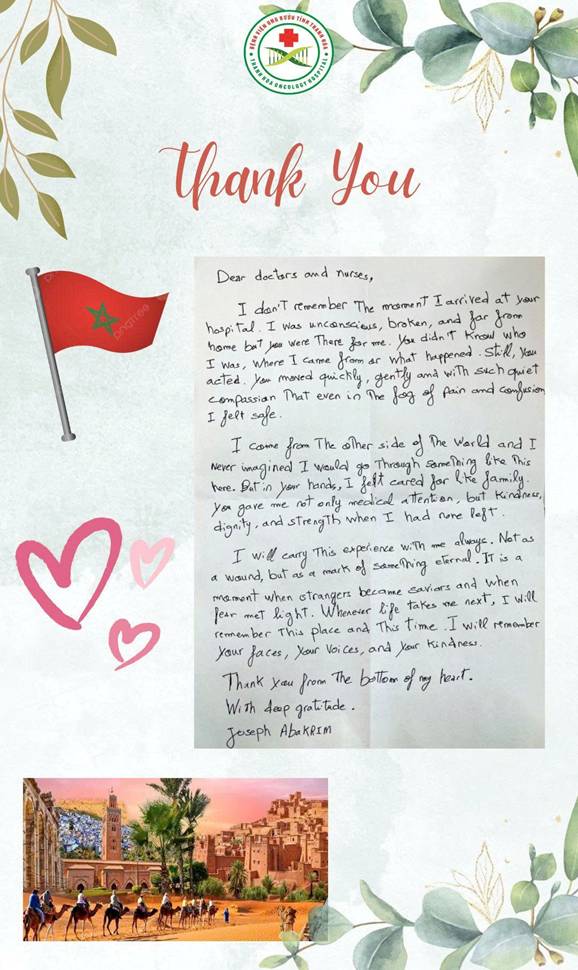 BỆNH VIỆN UNG BƯỚU TỈNH THANH HÓA
THANH HOA ONCOLOGY HOSPITAL
Thank You
pngtree
Dear doctors and nurses,
I don't remember The moment I arrived at your
hospital. I was unconscious, broken, and far from
home but you were There for me. You didn't Know who
I was, where I came from or what happened. Still, you
acted. You moved quickly, gently and with such quiet
compassion That even in The fog of pain and confusion
I felt safe.
I come from The other side of The world and I
never imagined I would go Through something like This
here. But in your hands, I felt cared for like family.
You gave me not only medical attention, but Kindness,
dignity, and strength when I had none left.
I will carry This experience with me always. Not as
a wound, but as a mark of something eternal. It is a
moment when strangers became saviors and when
fear met light. Whenever life takes me next, I will
remember This place and This time. I will remember
your faces, your voices, and your Kindness.
Thank you from The bottom of my heart.
With deep gratitude.
Joseph Abakrim